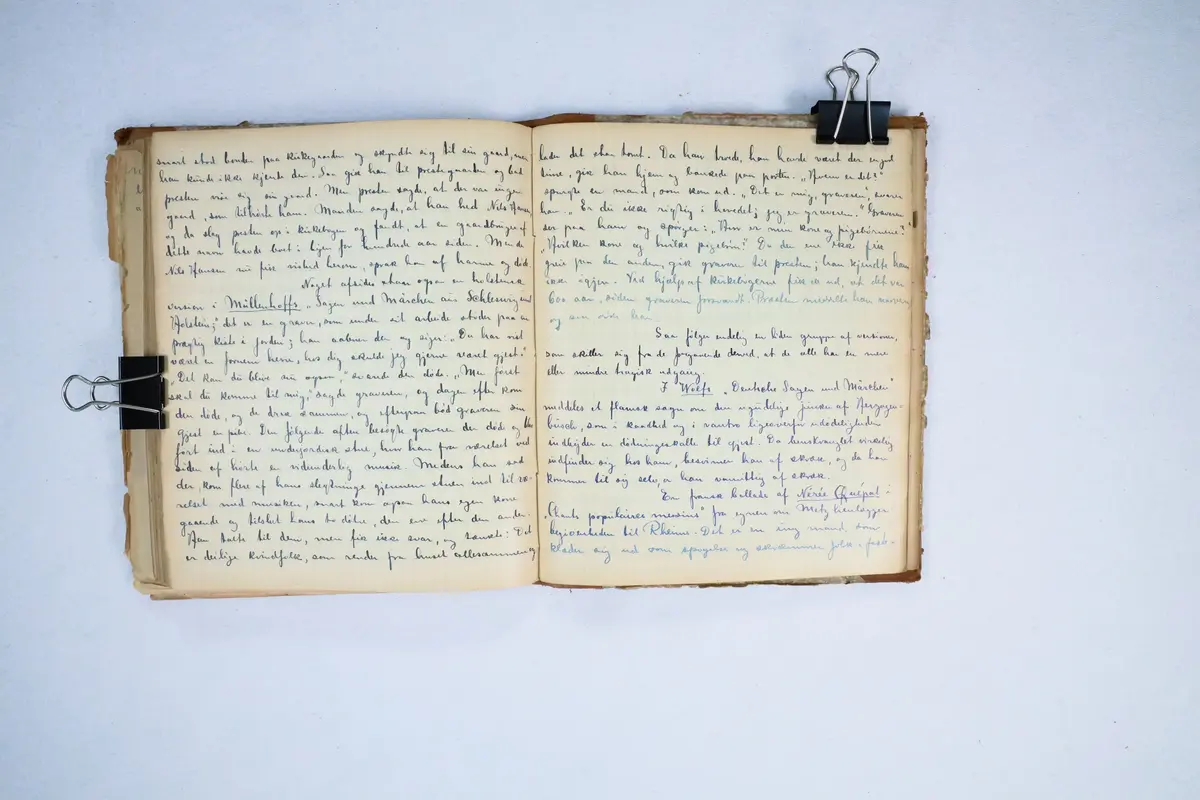 snart stod bonden paa kirkegaarden og skyndte sig til sin gaard, men
han kunde ikke kjende den. Saa gik han til prestegaarden og bad
presten vise sig sin gaard. Men presten sagde, at der var ingen
gaard, som tilhørte ham. Manden sagde, at han hed Nils Hansen,
og da slog presten op i kirkebogen og fandt, at en gaardbruger af
dette navn havde boet i byen for hundrede aar siden. Men da
Nils Hansen nu fik vished herom, sprak han af harme og døde.
Noget afsides staar ogsaa en holstensk
version i Müllenhoffs „Sagen und Märchen aus Schleswig und
Holstein;" det er en graver, som under sit arbeide støder paa en
prægtig kiste i jorden; han aabner den og siger: „Du har vist
været en fornem herre, hos dig skulde jeg gjerne været gjest."
„Det kan du blive min ogsaa," svarede den døde. „Men først
skal du komme til mig," sagde graveren, og dagen efter kom
den døde, og de drak sammen, og efterpaa bød graveren sin
gjest en pibe. Den følgende aften besøgte graveren den døde og blev
ført ind i en underjordisk stue, hvor han fra værelset ved
siden af hørte en vidunderlig musik. Medens han sad
der, kom flere af hans slegtninge gjennem stuen ind til væ-
relset med musiken, snart kom ogsaa hans egen kone
gaaende og tilslut hans to døtre, den ene efter den anden.
Han talte til dem, men fik ikke svar, og tænkte: Det
er deilige kvindfolk, som render fra huset allesammen og
lader det staa tomt. Da han troede, han havde været der en god
time, gik han hjem og bankede paa porten. „Hvem er det?"
spurgte en mand, som kom ud. „Det er mig, graveren," svarer
han. „Er du ikke rigtig i hovedet; jeg er graveren." Graveren
ser paa ham og spørger: „Hvor er min kone og pigebørnene?"
„Hvilken kone og hvilke pigebørn?" Da den ene ikke fik
greie paa den anden, gik graveren til presten; han kjendte ham
ikke igjen. Ved hjælp af kirkebøgerne fik de ud, at det var
600 aar, siden graveren forsvandt. Presten meddelte ham
og saa døde han.
Saa følger endelig en liden gruppe af versioner,
som skiller sig fra de foregaaende derved, at de alle har en mere
eller mindre tragisk udgang.
I Wolfs „Deutsche Sagen und Märchen"
meddeles et flamsk sagn om den ugudelige junker af Herzogen-
busch, som i kaadhed og i vantro ligeoverfor udødeligheden
indbyder en dødningeskalle til gjest. Da benskranglet virkelig
indfinder sig hos ham, besvimer han af skræk, og da han
kommer til sig selv, er han vanvittig af skræk.
En fransk ballade af Nérée Quépat i
„Chants populaires messins" fra egnen om Metz henlægger
begivenheden til Rheims. Det er en ung mand, som
klæder sig ud som spøgelse og skræmmer folk.